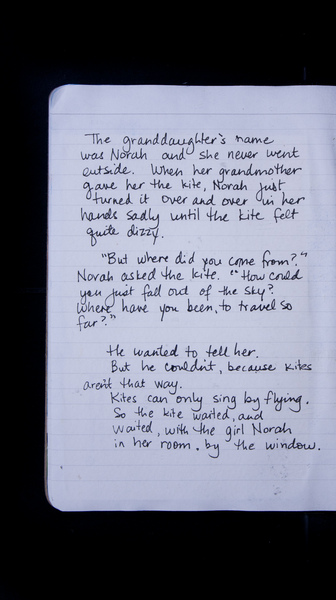 The granddaughter's name
was Norah and she never went
outside. When her grandmother
gave her the kite, Norah just
turned it over and over in her
hands sadly until the kite felt
quite dizzy.
"But where did you come from?"
Norah asked the kite. "How could
you just fall out of the sky?
Where have you been, to travel so
far?"
He wanted to tell her.
But he couldn't, because kites
aren't that way.
Kites can only sing by flying.
So the kite waited, and
waited, with the girl Norah
in her room. by the window.